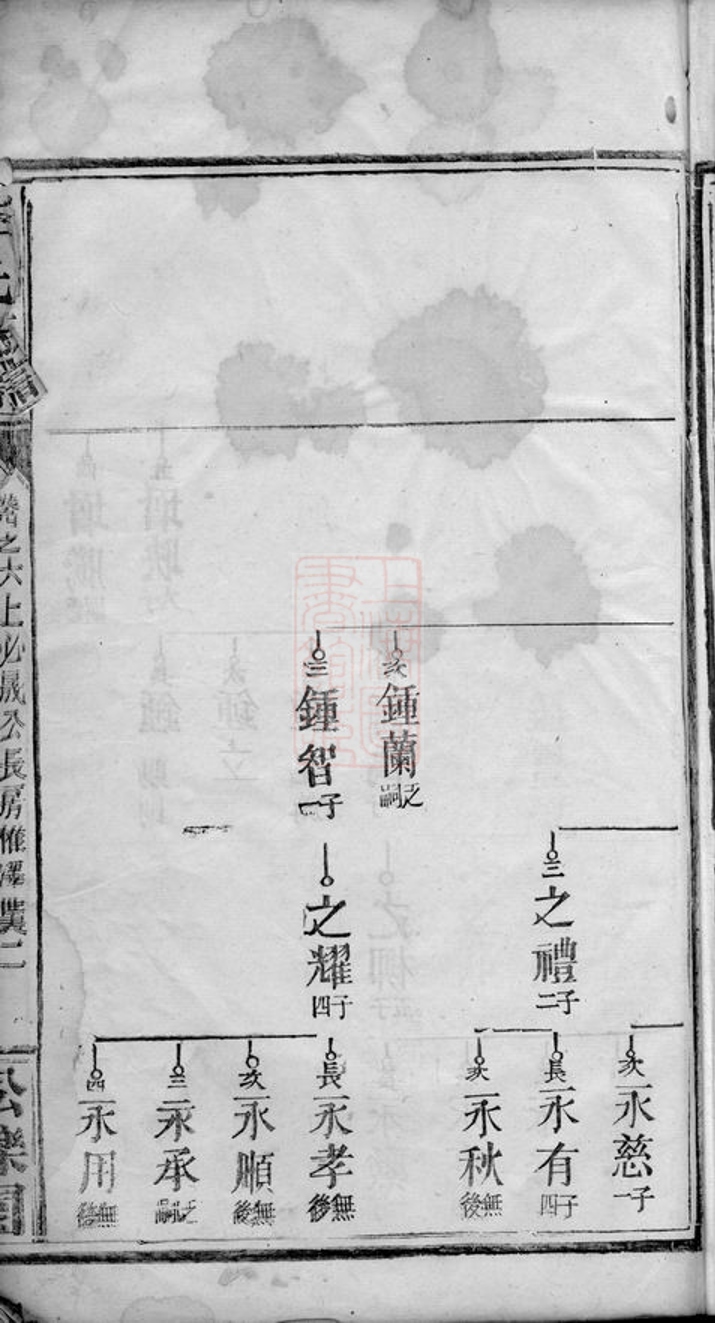 次鍾蘭乏嗣
三鍾智一子
三之禮二子
之耀四子
次永慈一子
長永有四子
次永秋無後
長永孝無後
次永順無後
三永承乏嗣
四永用無後
卷之六上必晟公長房惟
二